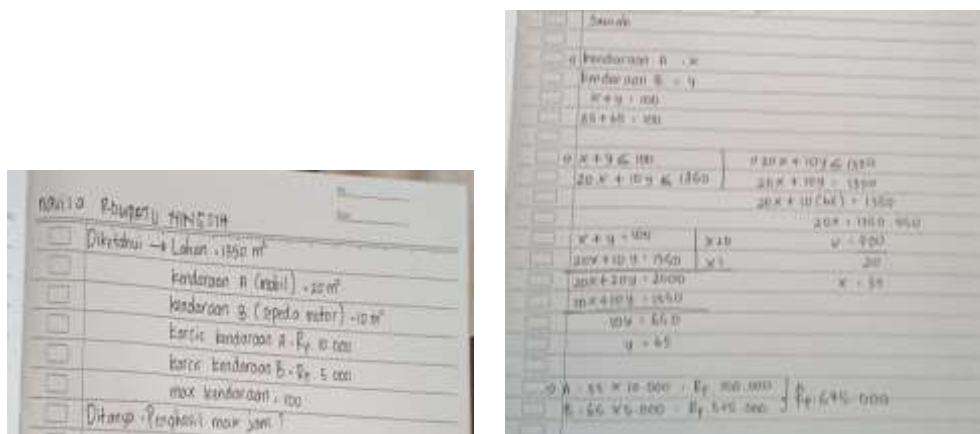 Diketahui → Lahan = 1350 m²
kendaraan A (mobil) = 20 m²
kendaraan B (sepeda motor) = 10 m²
karcis kendaraan A = Rp. 10.000
karcis kendaraan B = Rp. 5.000
max kendaraan = 100
Ditanya = Penghasil max jam?
Jawab
kendaraan A = x
kendaraan B = y
x + y = 100
35 + 65 = 100
x + y ≤ 100
20x + 10y ≤ 1350
20x + 10y ≤ 1350
20x + 10y = 1350
20x + 10(65) = 1350
20x = 1350 - 650
x = 700
20
x = 35
x + y = 100 | x20
20x + 10y = 1350 | x1
20x + 20y = 2000
20x + 10y = 1350
10y = 650
y = 65
A = 35 x 10.000 = Rp.
B = 65 x 5.000 = Rp.
Rp. 675.000